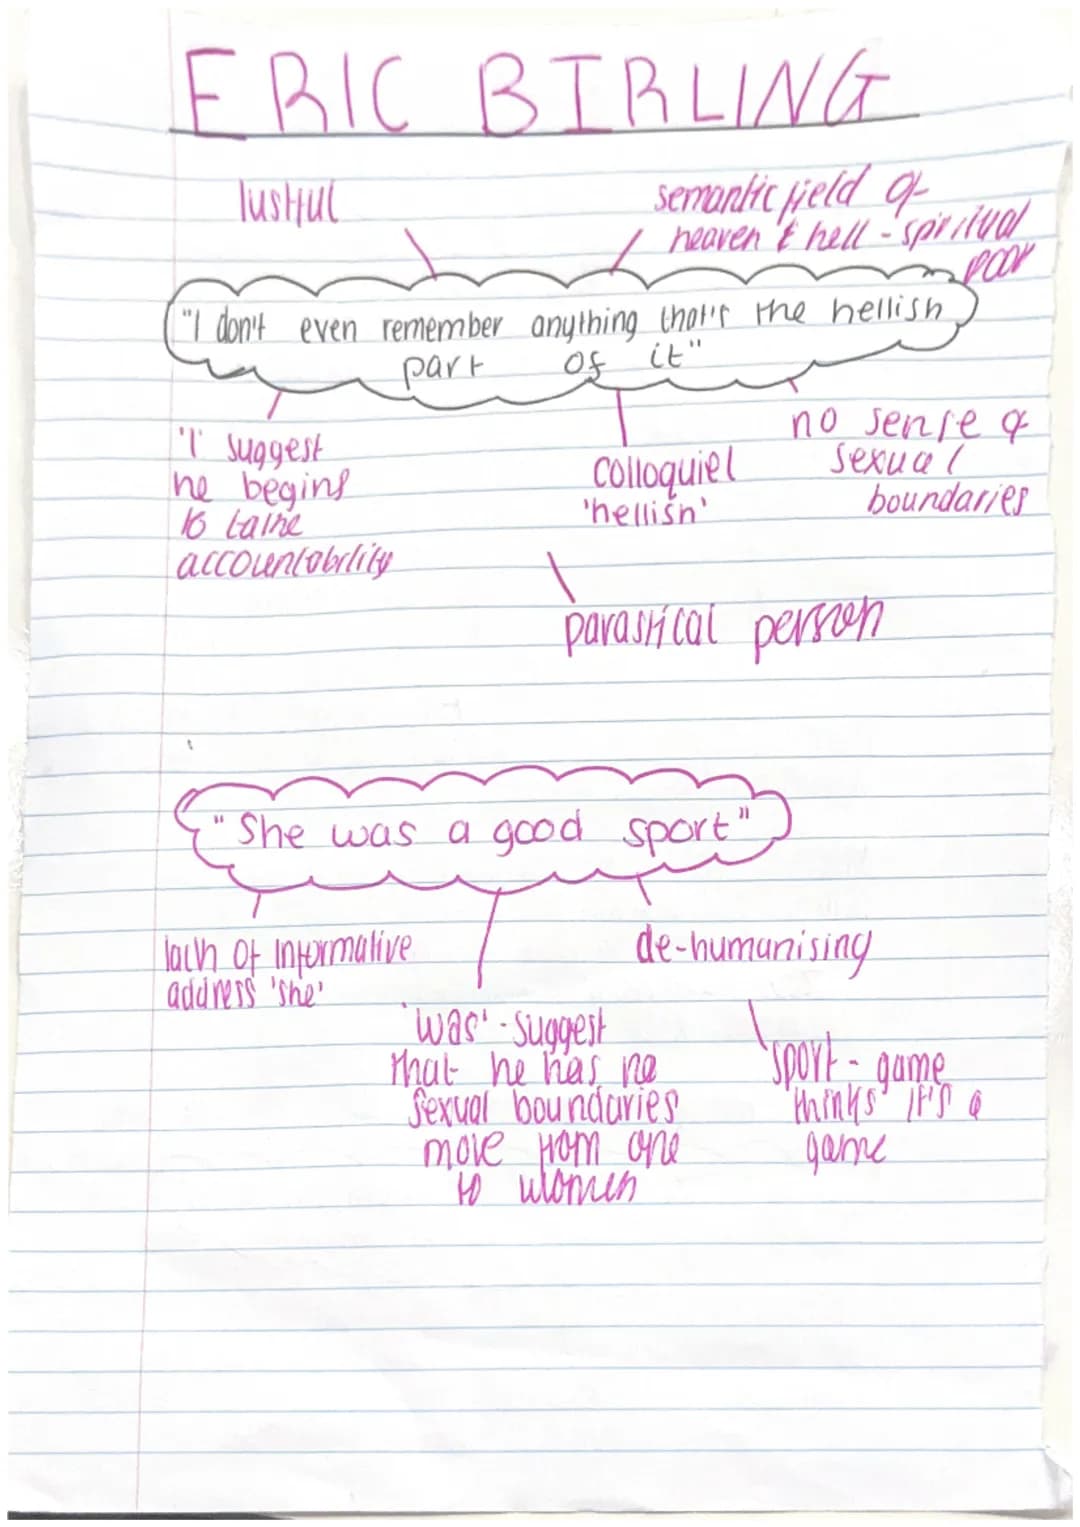 ERIC BIRLING
lustful
semantic field of
heaven & hell - spiritual
poor
"I don't even remember anything that's the hellish
part of it"
'I' suggest
he begins
to take
accountability
colloquiel
'hellish'
no sense of
sexual
boundaries
parastical person
"She was a good sport"
lack of informative
address 'she'
de-humanising
'was' - suggest
that he has no
sexual boundaries
move from one
to women
'sport - game
thinks it's a
game